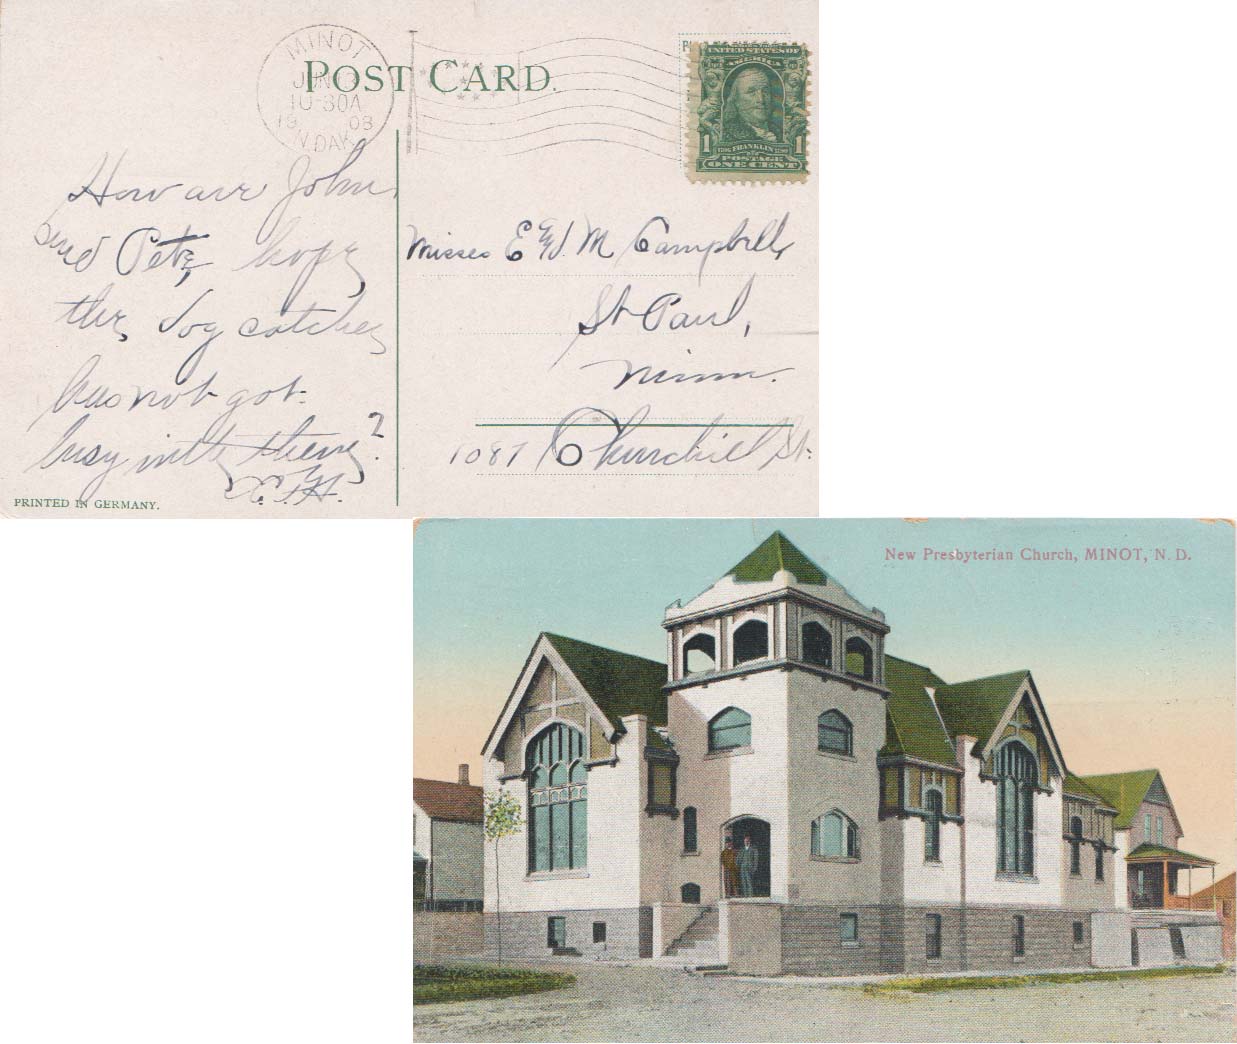 MINOT
JUN
10-30A
19 08
N.DAK.
POST CARD.
UNITED STATES OF
AMERICA
1 1
FRANKLIN
POSTAGE
ONE CENT
How are John
and Pete, hope
the dog catcher
has not got
busy with them?
Misses E & M Campbell
St Paul,
Minn.
1087 Churchill St.
PRINTED IN GERMANY.
New Presbyterian Church, MINOT, N. D.